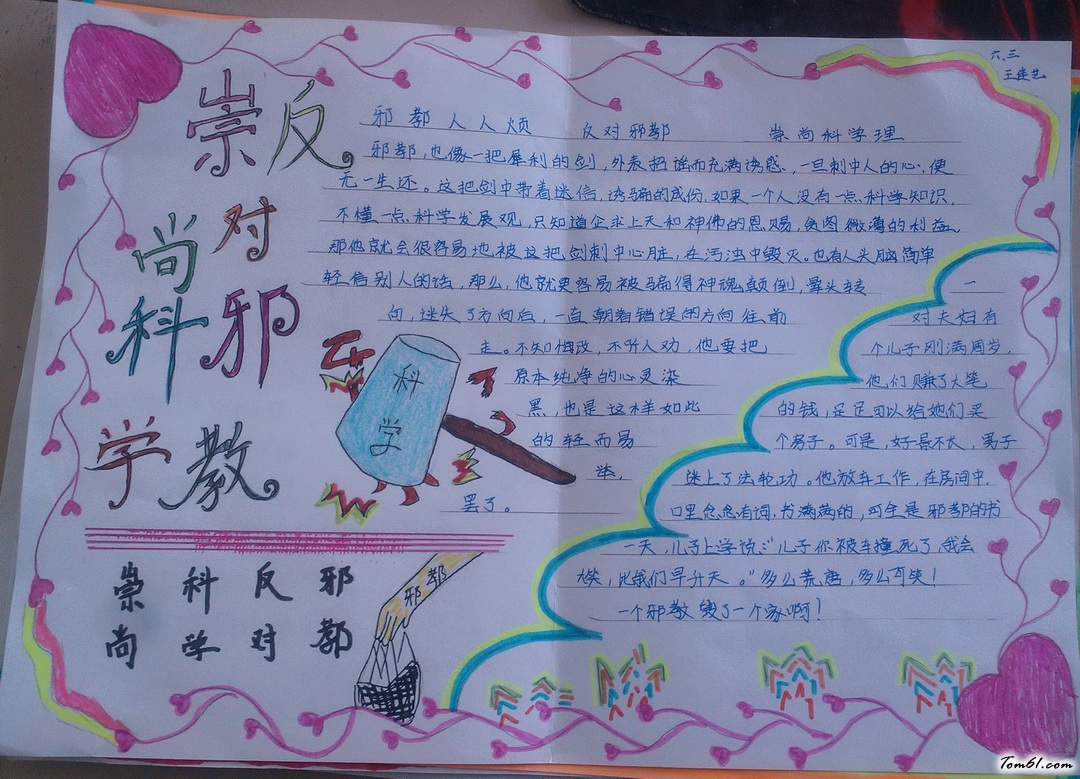 六.三
王佳艺
崇尚科学
反对邪教
邪教人人烦 反对邪教 崇尚科学理
邪教,也像一把犀利的剑,外表招谣而充满诱惑,一旦刺中人的心,便
无一生还。这把剑中带着迷信,诱骗的成份.如果一个人没有一点科学知识,
不懂一点科学发展观,只知道企求上天和神佛的恩赐,贪图微薄的利益,
那他就会很容易地被这把剑刺中心脏,在污浊中毁灭。也有人头脑简单
轻信别人的话,那么,他就更容易被骗得神魂颠倒,晕头转
向,迷失了方向后,一直朝着错误的方向往前
走。不知悔改,不听人劝,他要把
原本纯净的心灵染
黑,也是这样如此
的轻而易
举,
罢了。
科学
一
对夫妇有
个儿子刚满周岁,
他们赚了大笔
的钱,足足可以给她们买
个房子。可是,好景不长,男子
迷上了法轮功。他放弃工作,在房间中,
口里念念有词.书满满的,可全是邪教的书
一天,儿子上学说:"儿子你被车撞死了,我会
大笑,比我们早升天。"多么荒唐,多么可笑!
一个邪教毁了一个家啊!
崇科反邪
尚学对教
邪教
Tom61.com